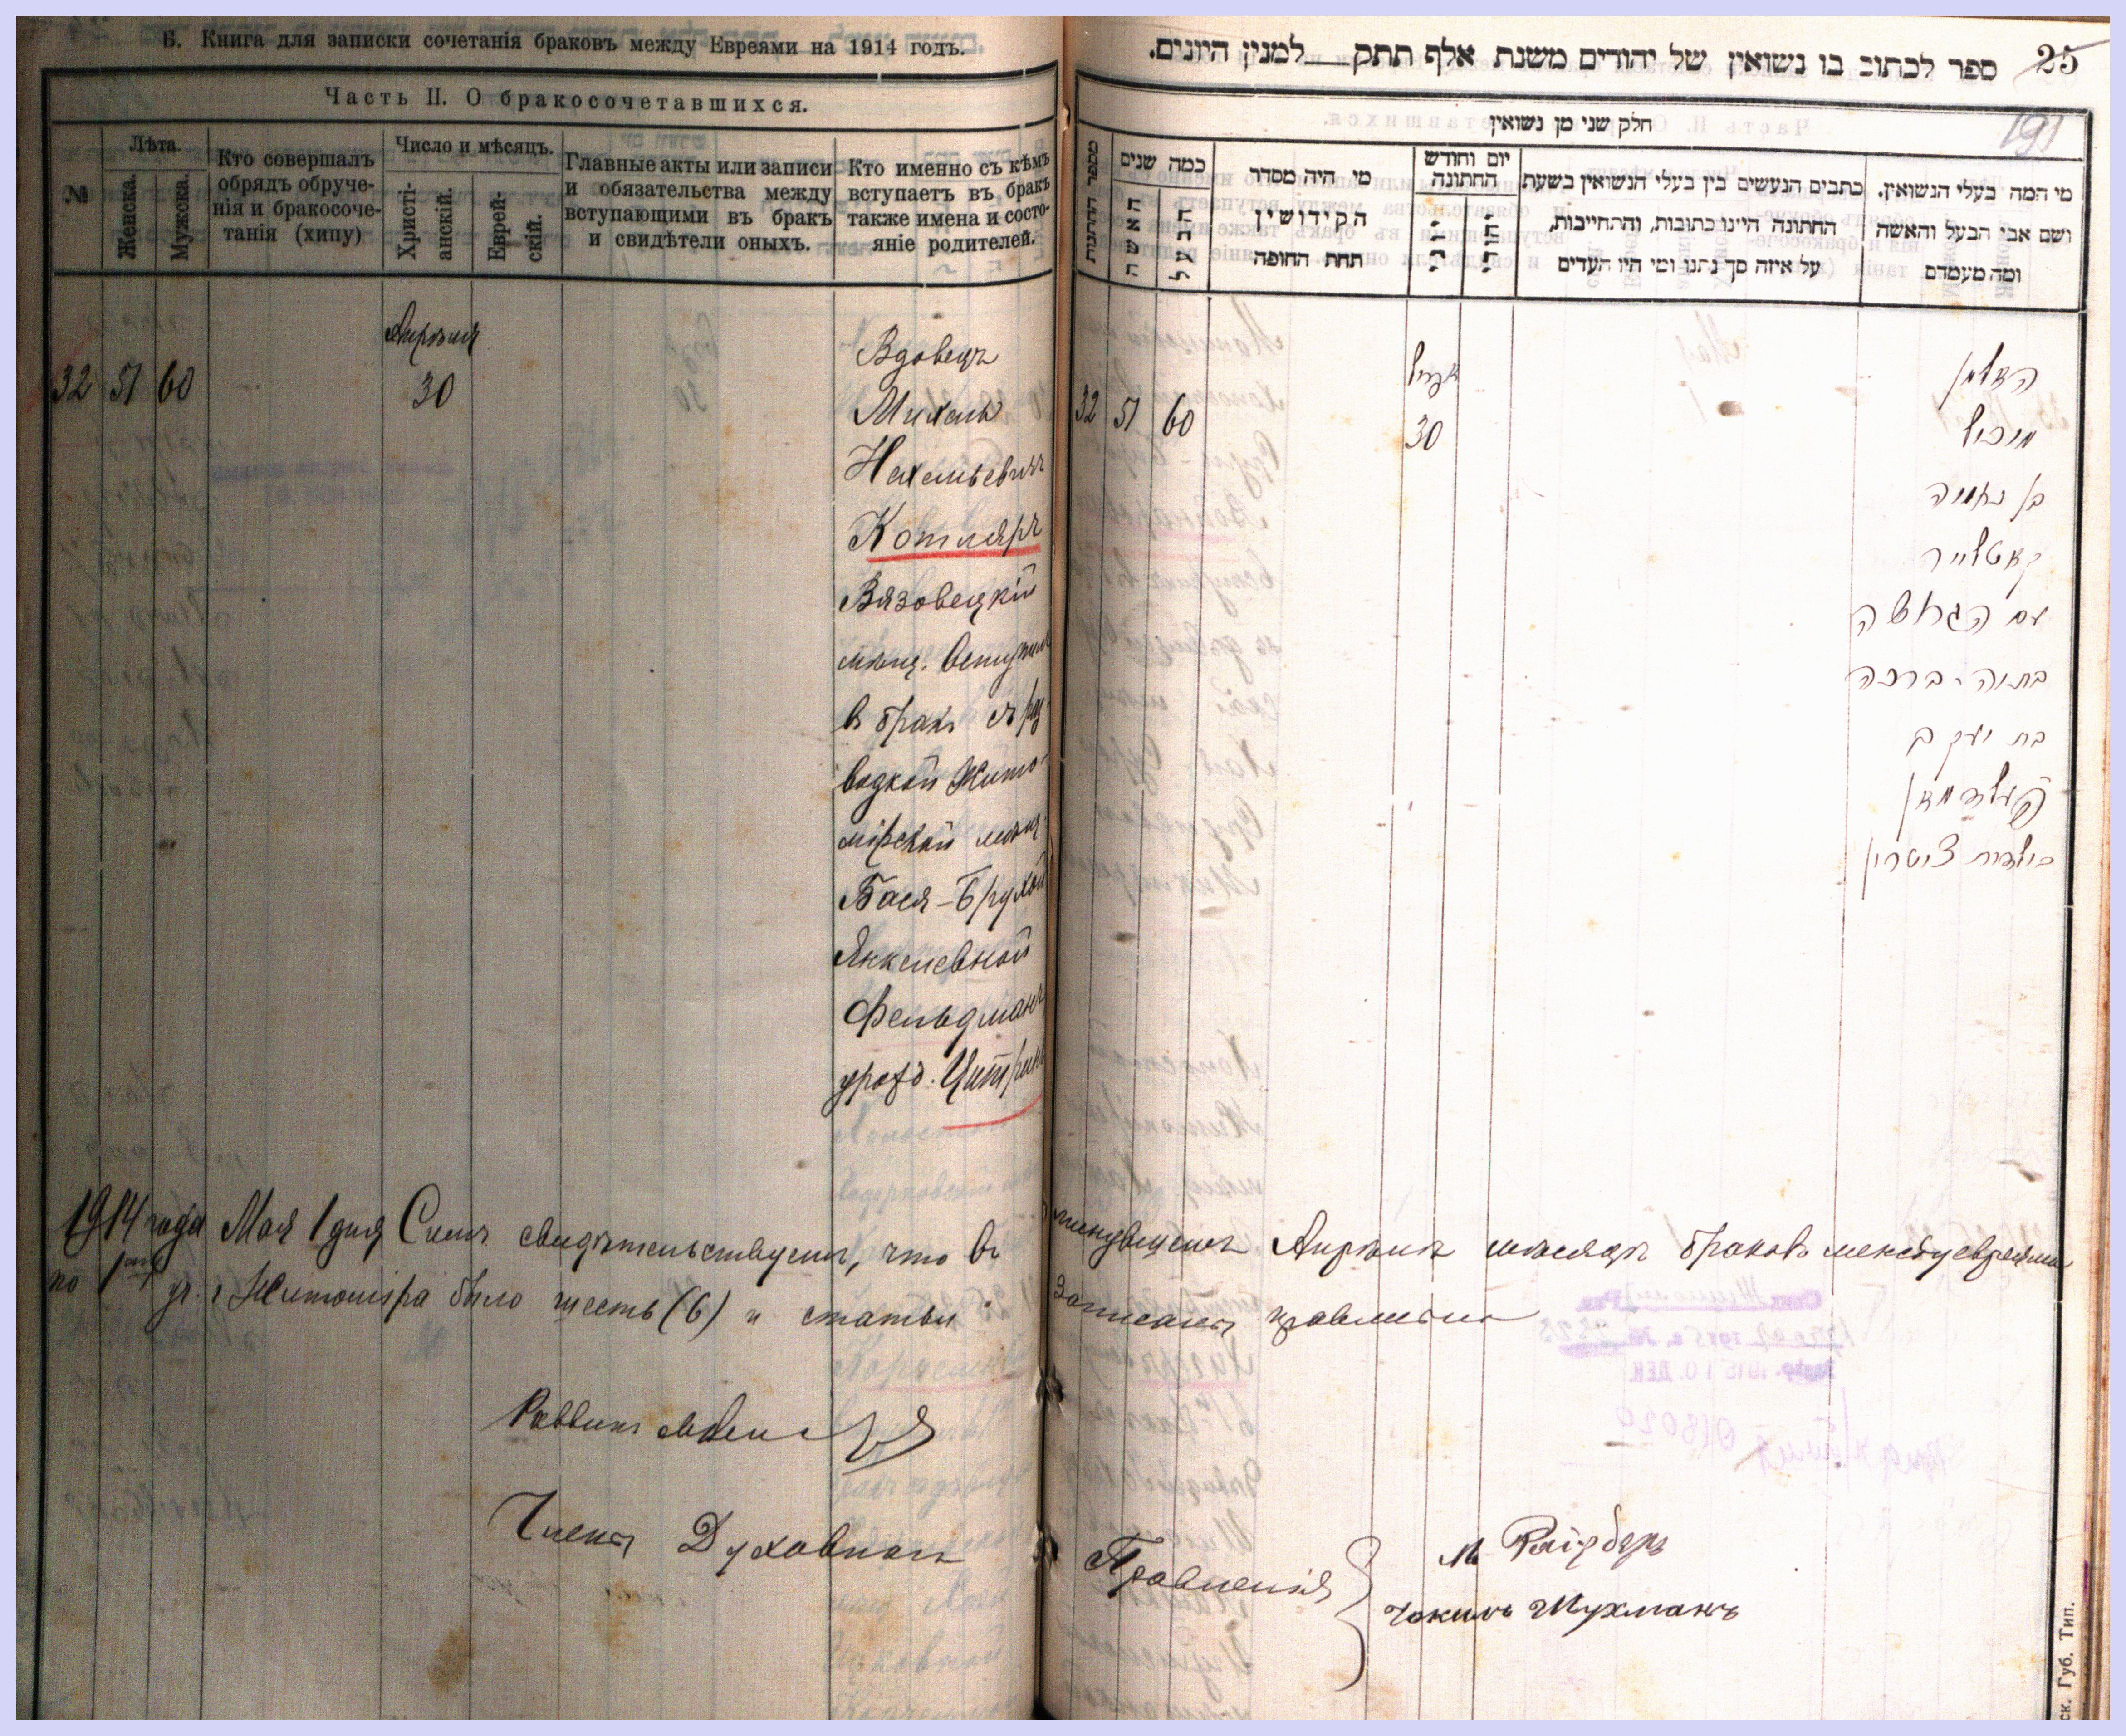 Б. Книга для записки сочетанія браковъ между Евреями на 1914 годъ.
Часть II. О бракосочетавшихся.
№
Лѣта.
Женска.
Мужска.
Кто совершалъ
обрядъ обруче-
нія и бракосоче-
танія (хипу)
Число и мѣсяцъ.
Христі-
анскій.
Еврей-
скій.
Главные акты или записи
и обязательства между
вступающими въ бракъ
и свидѣтели оныхъ.
Кто именно съ кѣмъ
вступаетъ въ бракъ
также имена и состо-
яніе родителей.
Апрѣля
32 51 60 30
Вдовецъ
Михель
Котляръ
Вязовецкій
мѣщ. вступилъ
въ бракъ съ раз
водкой Жито-
мірской мѣщ.
Бася-Брухой
Янкелевной
Фельдманъ
урожд. Цитринъ
ספר לכתוב בו נשואין של יהודים משנת אלף תתק למנין היונים.
25
191
חלק שני מן נשואין
מספר החתנות
כמה שנים
האשה
הבעל
מי היה מסדר
הקידושין
תחת החופה
יום וחודש
החתונה
כתבים הנעשים בין בעלי הנשואין בשעת
החתונה היינו כתובות, וההתחייבות,
על איזה סך נתנו ומי היו העדים
מי המה בעלי הנשואין.
ושם אבי הבעל והאשה
ומה מעמדם
אפריל
32 51 60 30
האלמן
מיכל
בן נחמיה
קאטליר
עם הגרושה
בתיה-ברכה
בת יעקב
פעלדמאן
ציטרין
1914 года Мая 1 дня Симъ свидѣтельствуемъ, что въ минувшемъ Апрѣлѣ мѣсяцѣ браковъ между евреями
по 1 уч. г. Житоміра было шесть (6) и статьи записаны правильно
Раввинъ
Члены Духовнаго Правленія
М Райзберъ
Шухманъ
ск. Губ. Тип.